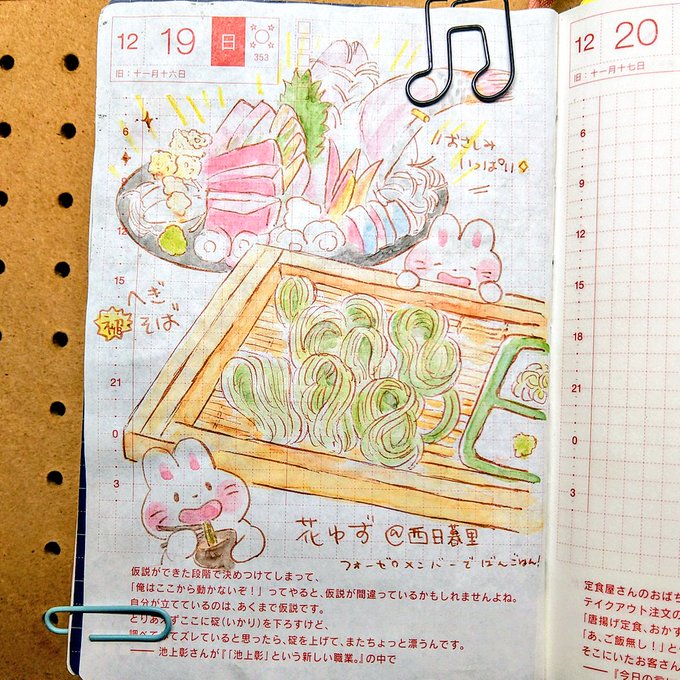 12 19 日 353
旧：十一月十六日
おさしみ
いっぱい
へぎ
そば
花ゆず@西日暮里
フォーゼロメンバーでばんごはん!
6
12
15
21
0
3
仮説ができた段階で決めつけてしまって、
「俺はここから動かないぞ！」ってやると、仮説が間違っているかもしれませんよね。
自分が立てているのは、あくまで仮説です。
とりあえずここに碇(いかり)を下ろすけど、
調べて ズレしていると思ったら、碇を上げて、またちょっと漂うんです。
── 池上彰さんが『「池上彰」という新しい職業。』の中で
12 20
旧：十一月十七日
6
9
12
15
18
21
0
3
定食屋さんのおばち
テイクアウト注文の
「唐揚げ定食、おかず
「あ、ご飯無し！」と
そこにいたお客さん
── 『今日の